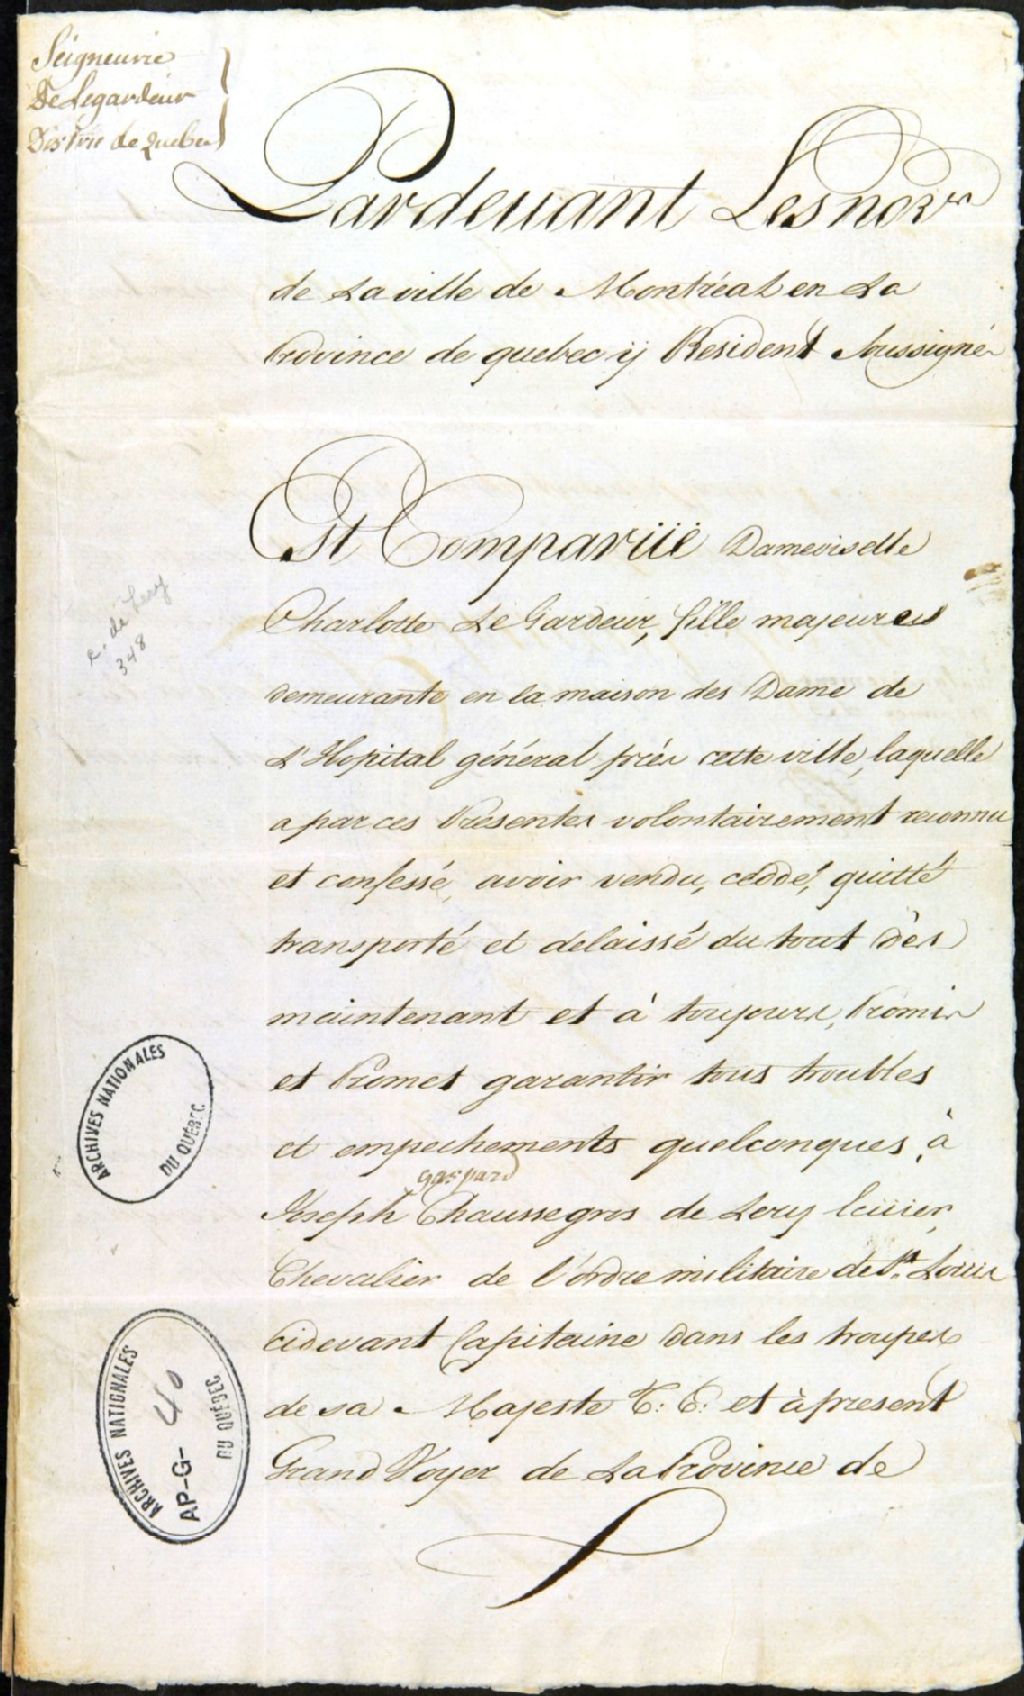 Seigneurie
De Legardeur
District de Quebec
Pardevant Les nores
de La ville de Montréal en La
Province de quebec ij Resident Soussigné
Est Comparüë Damoiselle
Charlotte Le Gardeur, fille majeure
demeurante en la maison des Dame de
L'Hopital général près cette ville, laquelle
a par ces Presentes volontairement reconnu
et confessé, avoir vendu, ceddé, quitté
transporté et delaissé du tout dès
maintenant et à toujours, Promis
et Promet garantir tous troubles
et empechements quelconques, à
gaspard
Joseph Chaussegros de Lery Ecüier,
Chevalier de l'ordre militaire de St. Louis
cidevant Capitaine dans les troupes
de sa Majeste T. C. et à présent
Grand Voyer de La Province de
c. de Lery
348
ARCHIVES NATIONALES
DU QUÉBEC
ARCHIVES NATIONALES
AP-G- 40
DU QUÉBEC